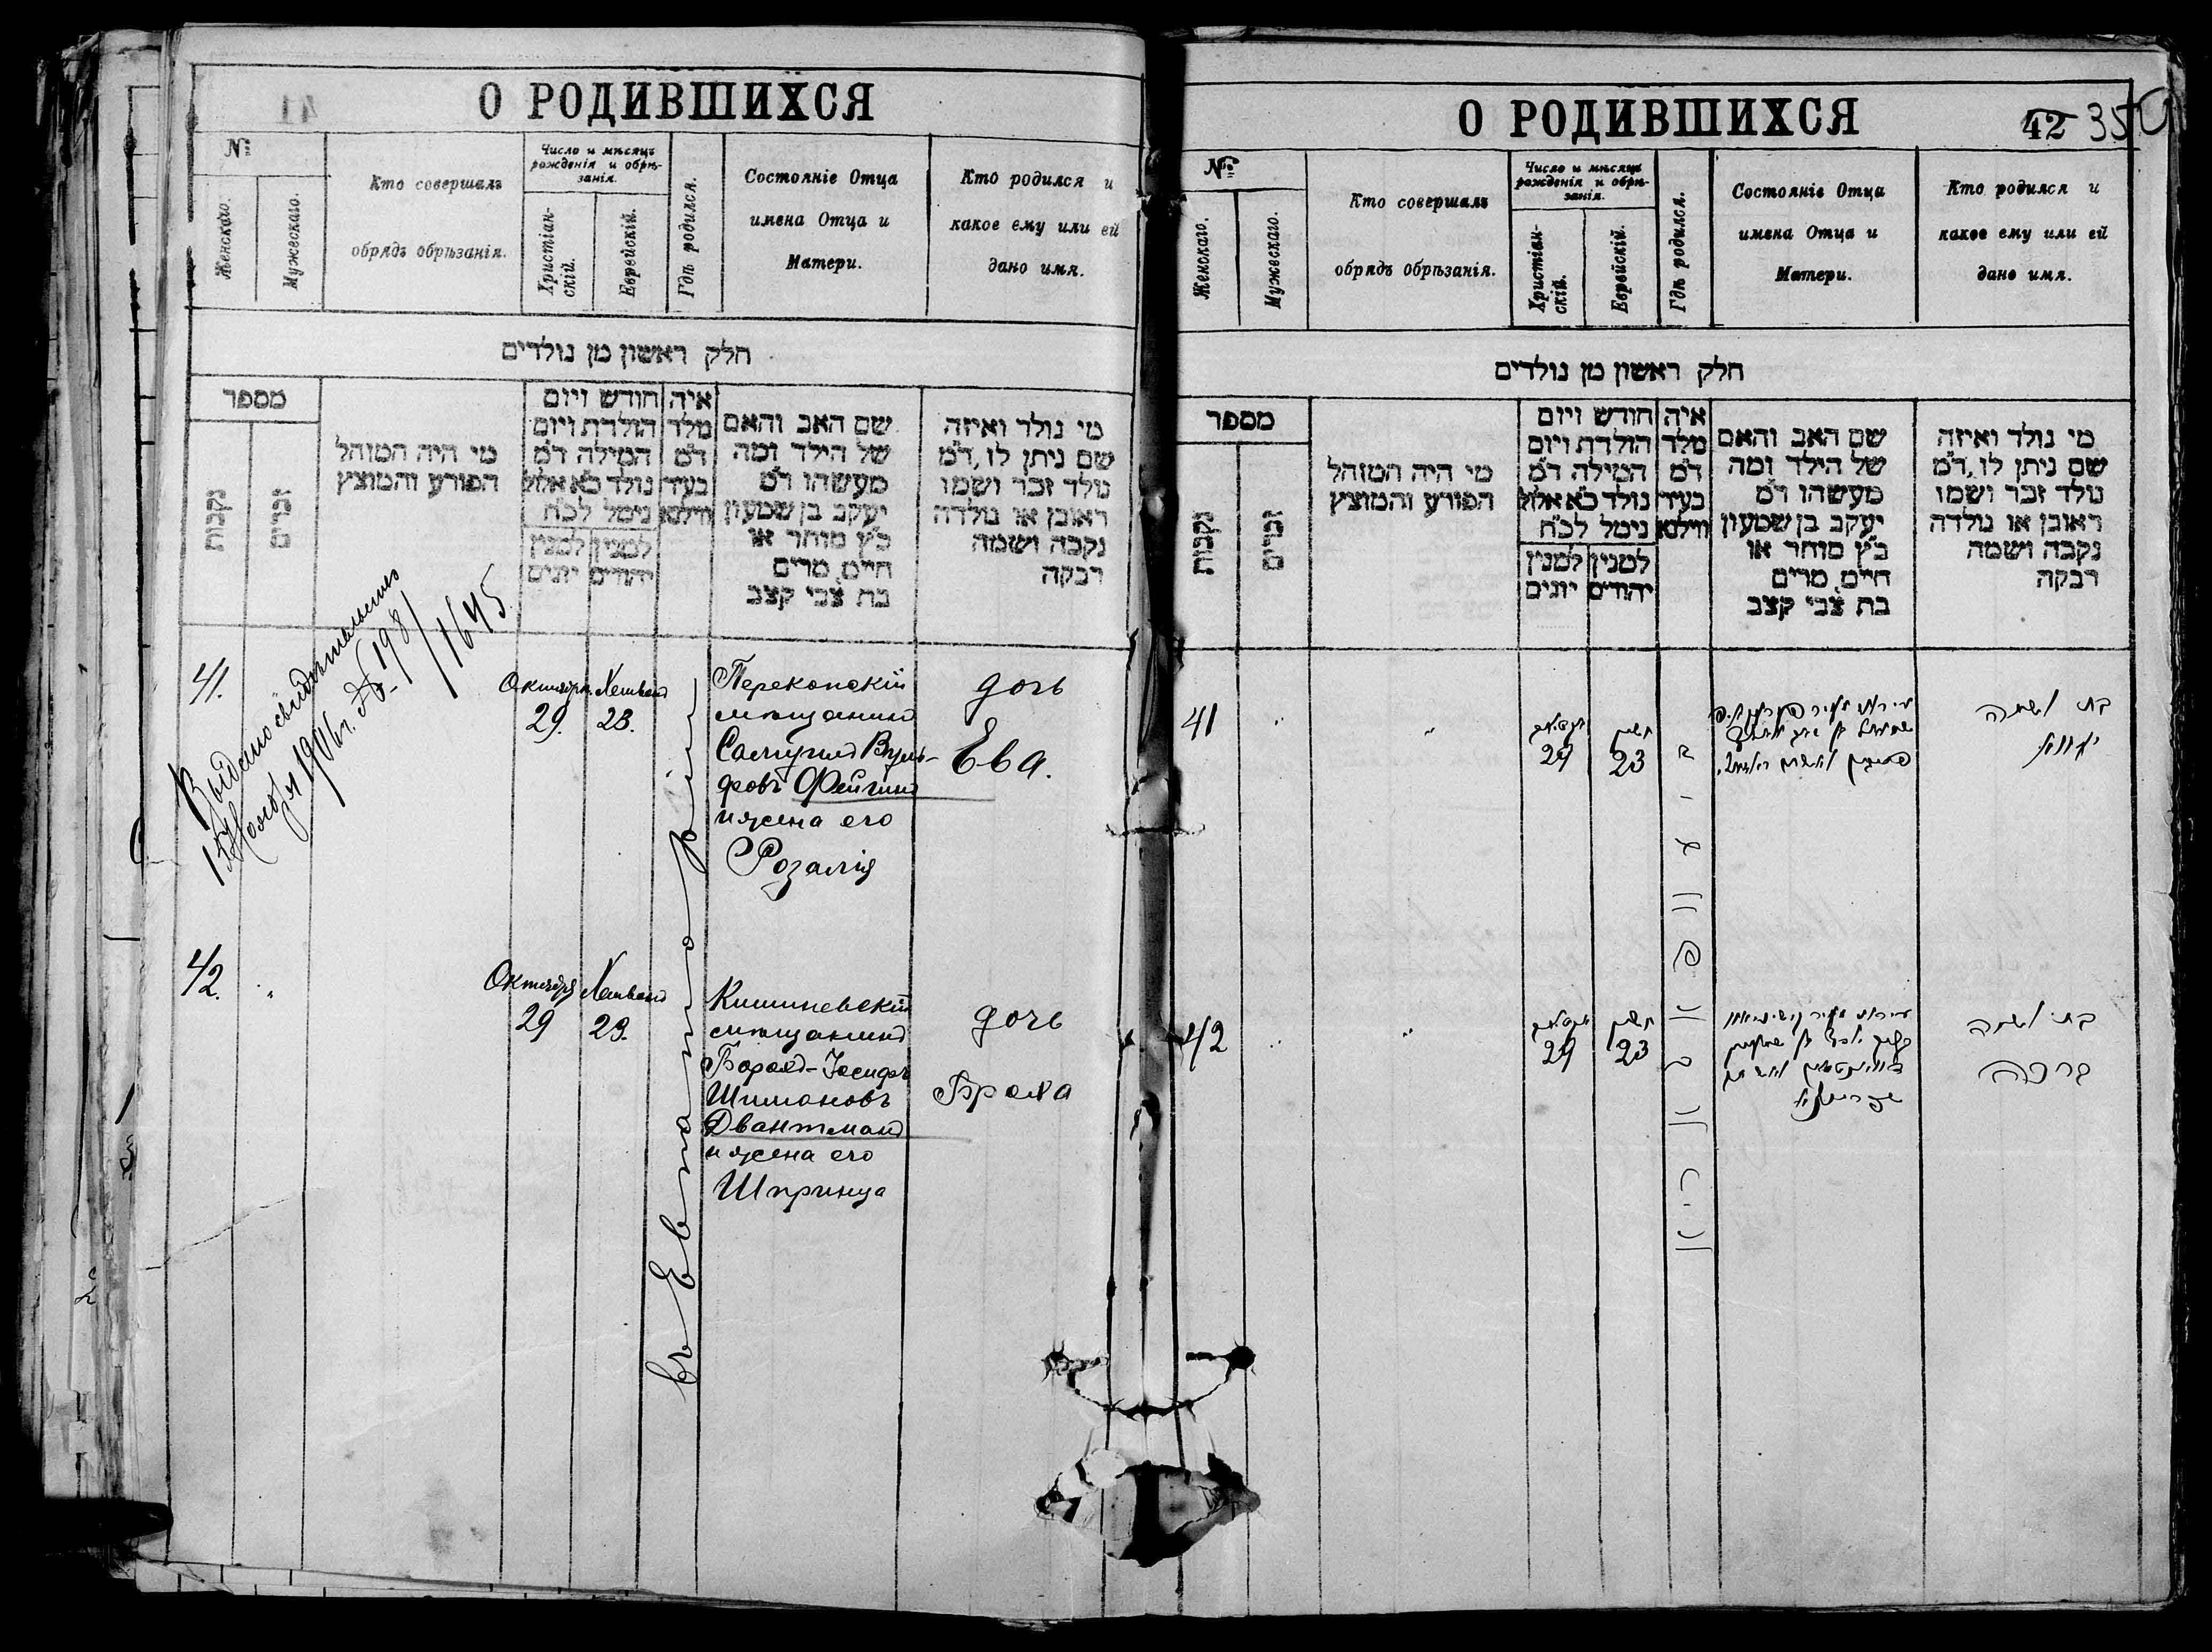 О РОДИВШИХСЯ
№
Женскаго.
Мужескаго.
Кто совершалъ
обрядъ обрѣзанія.
Число и мѣсяцъ
рожденія и обрѣ-
занія.
Христіан-
скій.
Еврейскій.
Гдѣ родился.
Состояніе Отца
имена Отца и
Матери.
Кто родился и
какое ему или ей
дано имя.
חלק ראשון מן נולדים
מספר
נקבות
זכרים
מי היה המוהל
הפורע והמוצץ
חודש ויום
הולדת ויום
המילה ד״מ
נולד כ״א אלול
נימל לכ״ח
למנין למנין
יהודים יונים
איה
מלד
ד״מ
בעיר
ווילנא
שם האב והאם
של הילד ומה
מעשהו ד״מ
יעקב בן שמעון
כ״ץ סוחר או
חיים, מרים
בת צבי קצב
מי נולד ואיזה
שם ניתן לו, ד״מ
נולד זכר ושמו
ראובן או נולדה
נקבה ושמה
רבקה
Выдано свидѣтельство
15 Ноября 1906 г. № 198/1645
41.
Октября
29.
Хешванъ
23.
въ Евпаторіи
Перекопскій
мѣщанинъ
Самуилъ Вуль-
фовъ Фейгинъ
и жена его
Розалія
дочь
Ева.
42.
Октября
29
Хешванъ
23.
Кишиневскій
мѣщанинъ
Борохъ-Іосифъ
Шимоновъ
Двантманъ
и жена его
Шпринца
дочь
Браха
О РОДИВШИХСЯ
42 350
№
Женскаго.
Мужескаго.
Кто совершалъ
обрядъ обрѣзанія.
Число и мѣсяцъ
рожденія и обрѣ-
занія.
Христіан-
скій.
Еврейскій.
Гдѣ родился.
Состояніе Отца
имена Отца и
Матери.
Кто родился и
какое ему или ей
дано имя.
חלק ראשון מן נולדים
מספר
נקבות
זכרים
מי היה המוהל
הפורע והמוצץ
חודש ויום
הולדת ויום
המילה ד״מ
נולד כ״א אלול
נימל לכ״ח
למנין למנין
יהודים יונים
איה
מלד
ד״מ
בעיר
ווילנא
שם האב והאם
של הילד ומה
מעשהו ד״מ
יעקב בן שמעון
כ״ץ סוחר או
חיים, מרים
בת צבי קצב
מי נולד ואיזה
שם ניתן לו, ד״מ
נולד זכר ושמו
ראובן או נולדה
נקבה ושמה
רבקה
41
29
חשון
23
בת ושמה
42
29
חשון
23
בת ושמה
ברכה